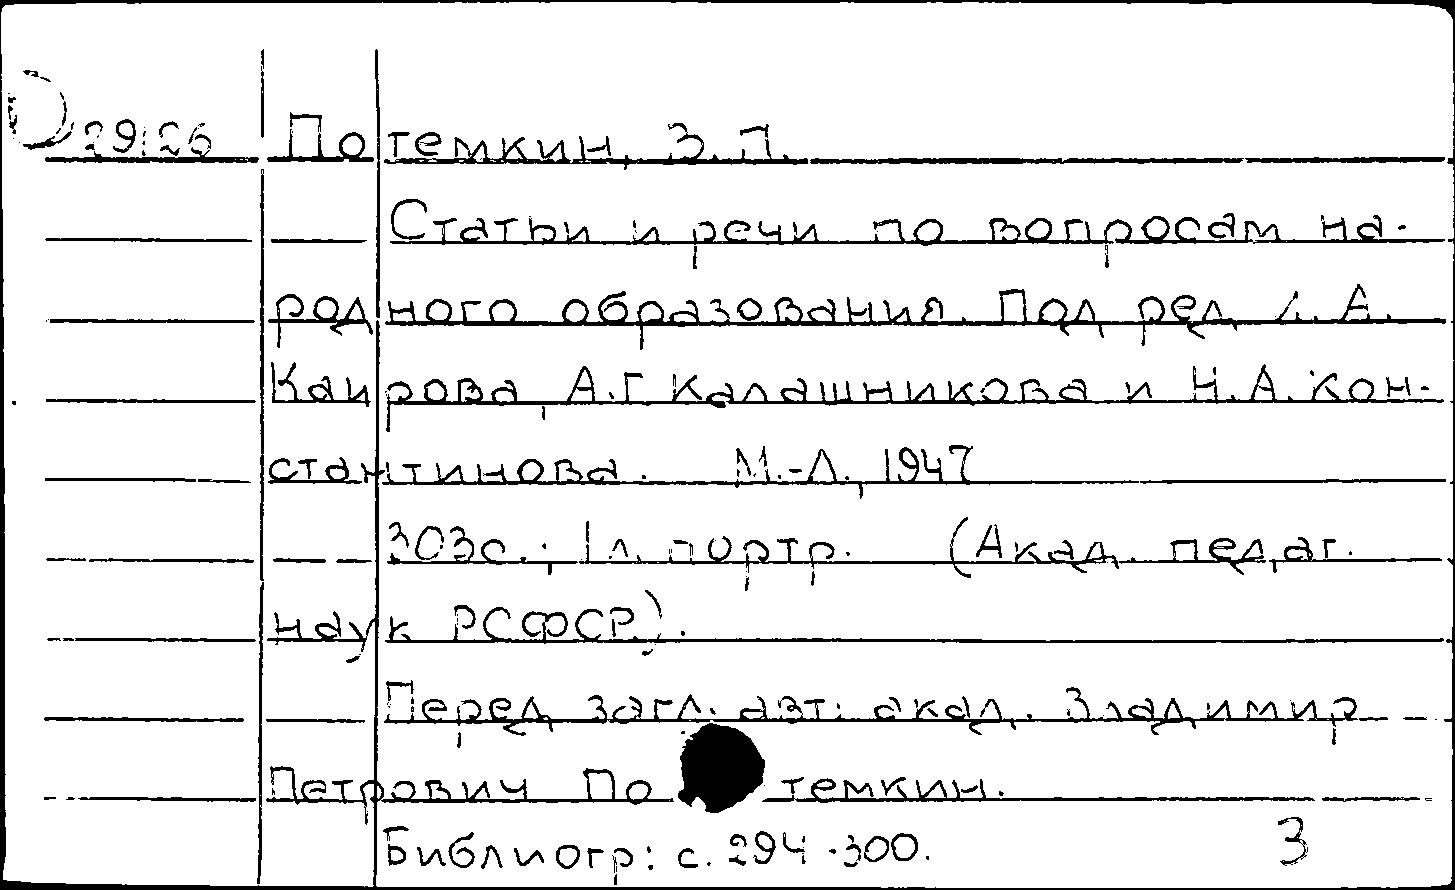 D 29126 Потемкин, В.П.
Статьи и речи по вопросам на-
родного образования. Под ред. И.А.
Каирова, А.Г. Калашникова и Н.А. Кон-
стантинова. М.-Л., 1947
303с.; 1л. портр. (Акад. педаг.
наук РСФСР).
Перед загл. авт.: акад. Владимир
Петрович Потемкин.
Библиогр: с. 294-300. 3